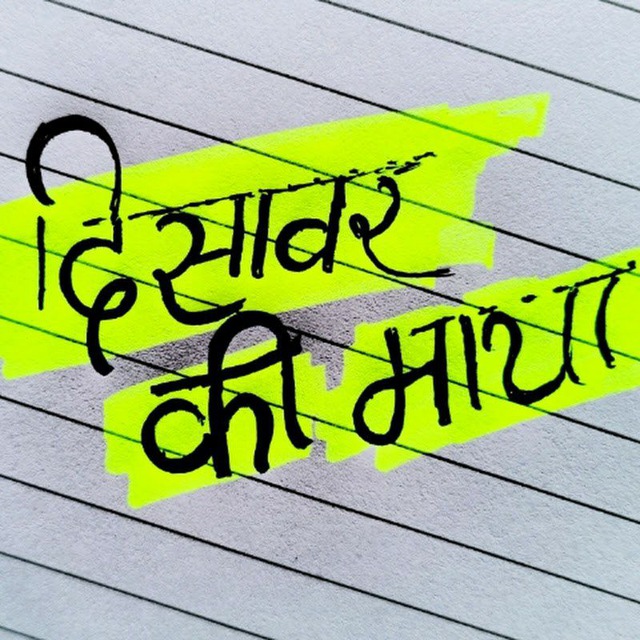 दिसावर
की माया